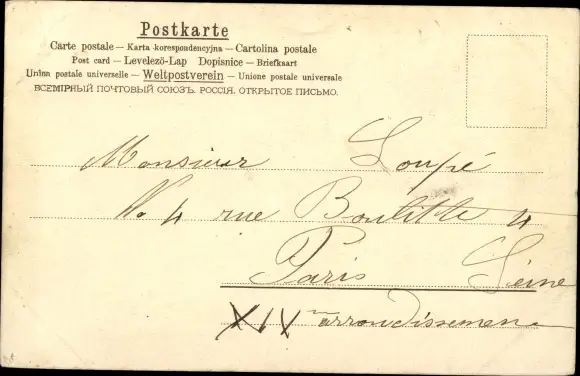 Postkarte
Carte postale — Karta korespondencyjna — Cartolina postale
Post card — Levelező-Lap Dopisnice — Briefkaart
Union postale universelle — Weltpostverein — Unione postale universale
ВСЕМІРНЫЙ ПОЧТОВЫЙ СОЮЗЪ. РОССІЯ. ОТКРЫТОЕ ПИСЬМО.
Monsieur Loupé
No 4 rue Boulitte 4
Paris Seine
XIV me arrondissement